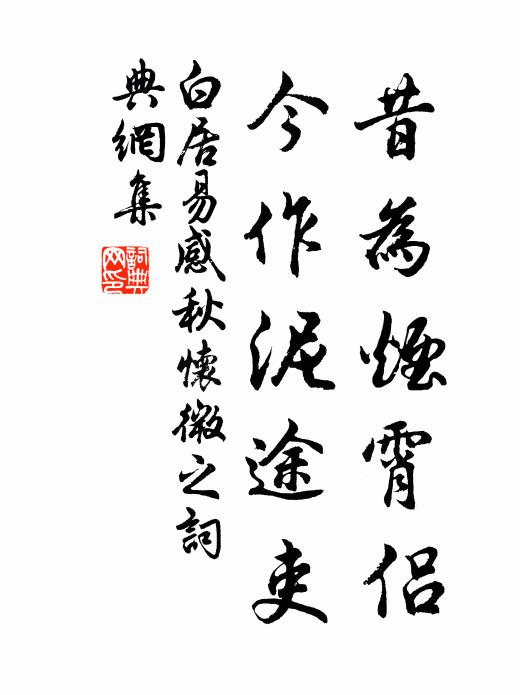 昔為煙霄侶
今作泥途吏
白居易感秋懷微之詞
典網集
詞典网印